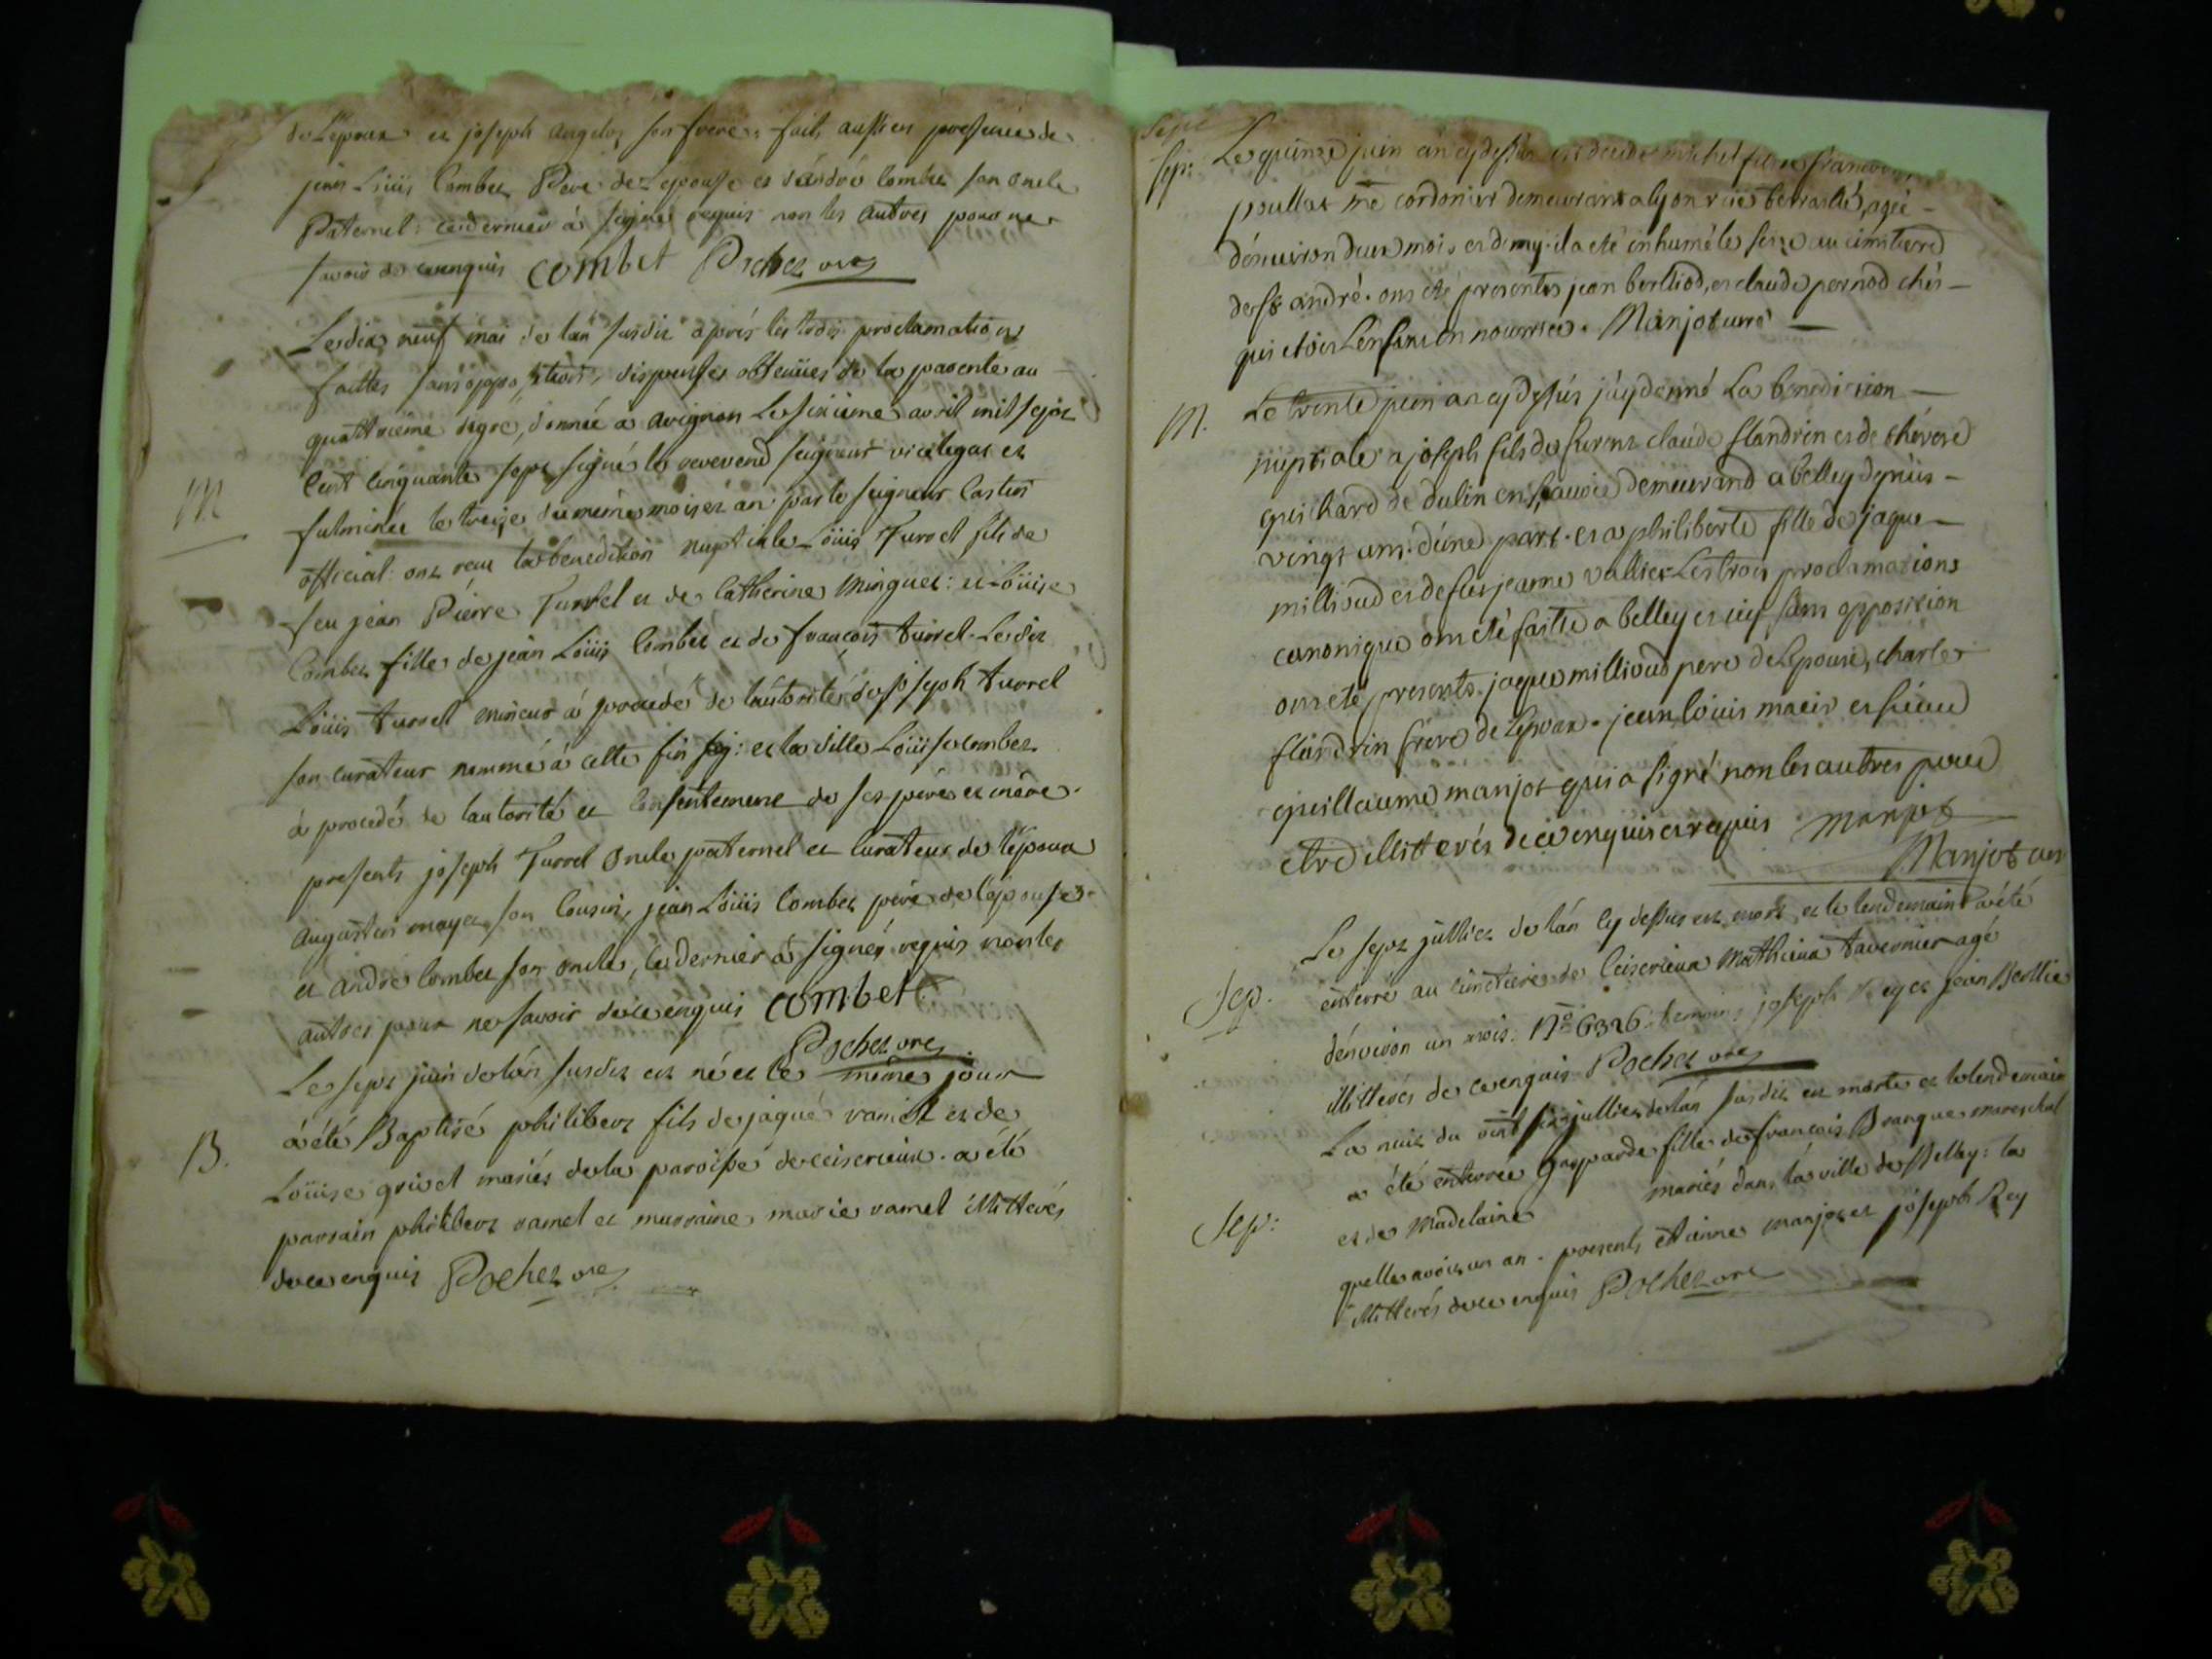 de Lepoux et joseph angelos son frere: fait aussi en presence de
jean Loüis Combet Pere de Lepouse et dandré combet son oncle
Paternel: ce dernier à signé requis non les autres pour ne
savoir de ce enquis combet Pochet vre
Le dix neuf mai de lan susdit aprés les trois proclamations
faittes sans opposition, dispenses obtenües de la parenté au
quattrieme degré, donnée a avignon Le sixieme avril mil sept
M
Cent cinquante sept signé le reverend seigneur vicelegat et
fulminée le treize du même mois et an par le seigneur
official: ont reçu la benediction nuptiale Loüis Turrel fils de
feu jean Piérre Turrel et de Catherine minguet: et Loüise
Combet fille de jean Loüis Combet et de françois turrel. Ledit
Loüis turrel mineur à procédé de l'autorité de joseph turrel
son curateur nommé à cette fin: et la ditte Loüise combet
à procedé de l'autorité et consentement de ses pere et mère.
presents joseph Turrel oncle paternel et curateur de l'époux
augustin mayet son cousin, jean Loüis Combet père de l'épouse
et andré combet son oncle, ce dernier à signé, requis non les
autres pour ne savoir de ce enquis combet
Pochet vre
Le sept juin de lán susdit est né et le même jour
B.
à été Baptisé philibert fils de jaque ramel et de
Loüise grivel mariés de la paroisse de ceiserieux. a été
parrain philibert ramel et marraine marie ramel illitterés
de ce enquis Pochet vre
Sept
Sep: Le quinze juin an cy dessus est decedé michel fils de francois
poullat me cordonier demeurant a lyon rüe, agé
d'environ deux mois et demy. il a eté inhumé le seize au cimitiere
de st andré. ont eté presents jean berlliod, et claude pernod chés
qui etoit l'enfant en nourrice. Manjot curé
M. Le trente juin an cy dessus j'ay donné La benediction
nuptiale a joseph fils de furent claude flandrin et de thérese
guichard de dulin en savoie demeurand a belley depuis
vingt ans. d'une part. et a philiberte fille de jaque
millioud et de jeanne vallier. Les trois proclamations
canonique ont eté faitte a belley et icy sans opposition
ont eté presents. jaque millioud pere de l'epouse, charle
flandrin frere de l'epoux. jean loüis et sieur
guillaume manjot qui a signé non les autres pour
etre illitterés de ce enquis et requis manjot
Manjot cur
Le sept julliet de lán cy dessus est mort et le lendemain à été
Sep. enterré au cimetiere de Ceiserieux Mathieux tavernier agé
d'environ un mois. No 6326: temoins joseph Rey et jean Berllie
illitterés de ce enquis Pochet vre
La nuit du vint six julliet de lán susdit est morte et le lendemain
a été enterrée gasparde fille de francois Brangue mareschal
Sep: et de Madelaine mariés dans la ville de Belley: la
quelle avoit un an. presents etienne manjot et joséph Rey
illitterés de ce enquis Pochet vre